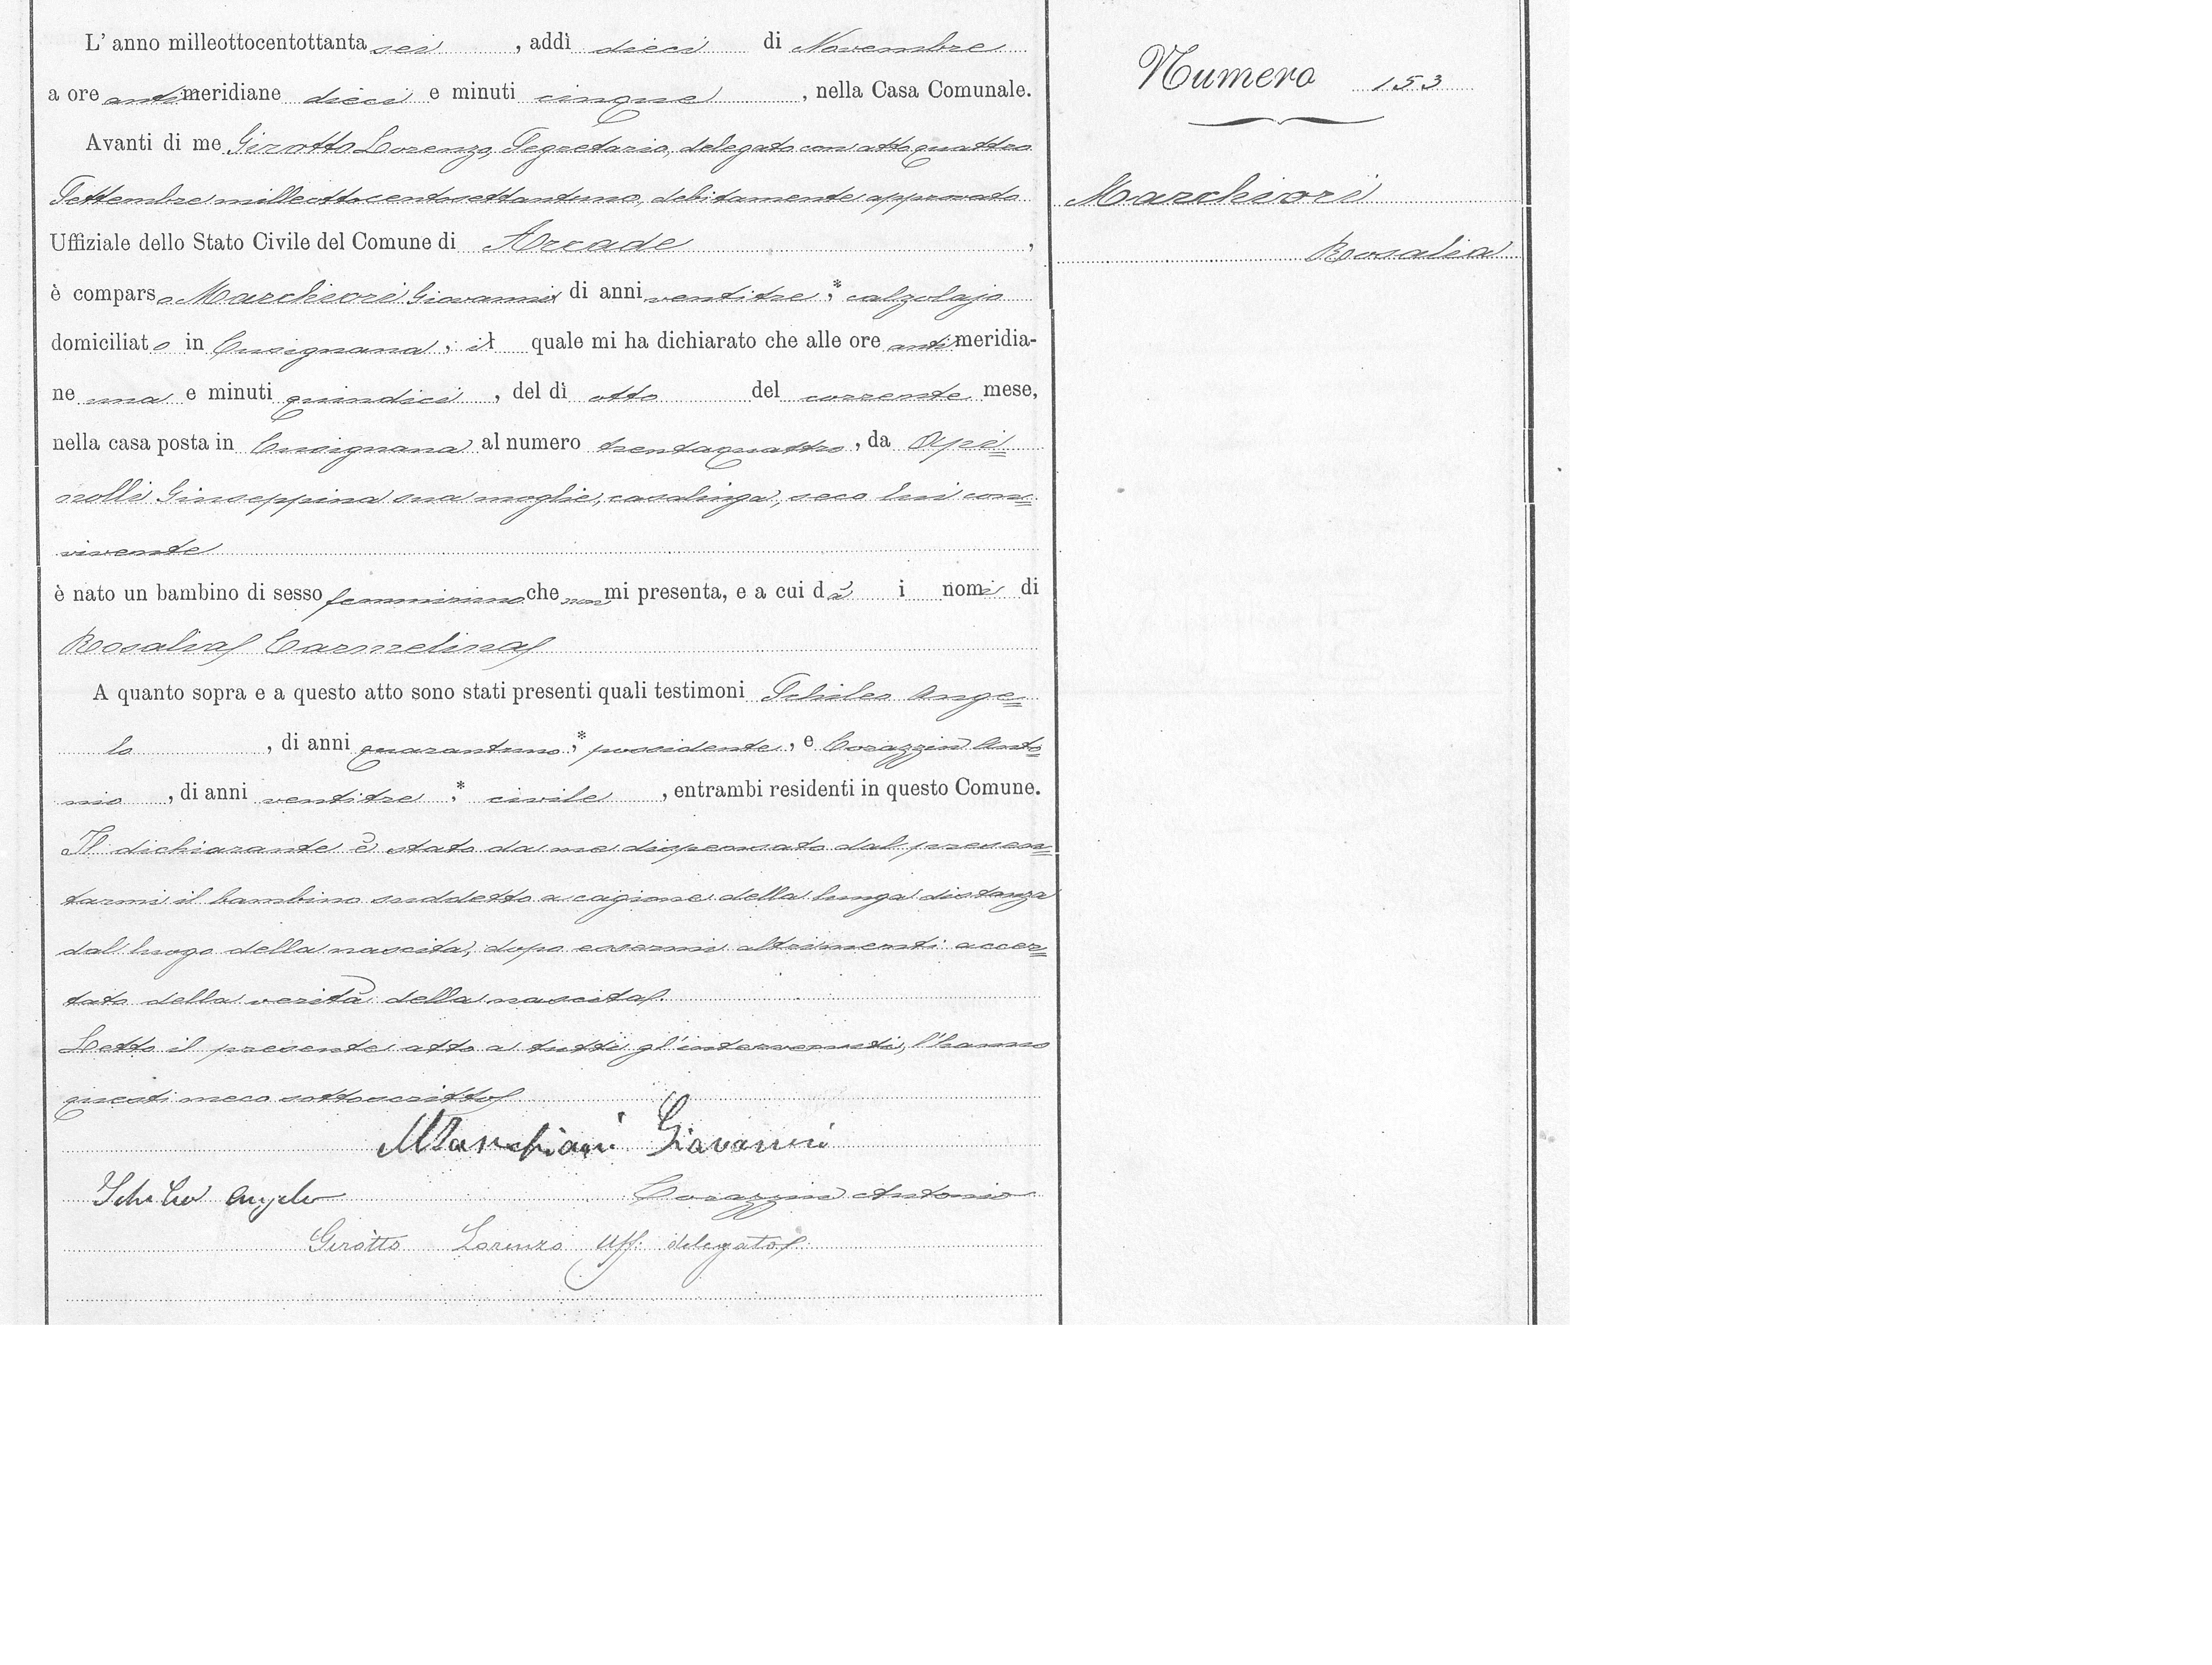 L' anno milleottocentottanta sei , addì dieci di Novembre
a ore anti meridiane dieci e minuti cinque , nella Casa Comunale.
Avanti di me Girotto Lorenzo, Segretario, delegato con atto quattro
Settembre milleottocentosettantuno, debitamente approvato
Uffiziale dello Stato Civile del Comune di Arcade ,
è comparso Marchiori Giovanni di anni ventitre ,* calzolajo
domiciliato in Cusignana , il quale mi ha dichiarato che alle ore anti meridia-
ne una e minuti quindici , del dì otto del corrente mese,
nella casa posta in Cusignana al numero trentaquattro , da Api=
nolli Giuseppina sua moglie, casalinga, seco lui con=
vivente
è nato un bambino di sesso femminino che non mi presenta, e a cui dà i nomi di
Rosalia Carmelina
A quanto sopra e a questo atto sono stati presenti quali testimoni Schileo Ange=
lo , di anni quarantuno ,* possidente , e Corazzin Anto=
nio , di anni ventitre ,* civile , entrambi residenti in questo Comune.
Il dichiarante è stato da me dispensato dal presen=
tarmi il bambino suddetto a cagione della lunga distanza
dal luogo della nascita, dopo essermi altrimenti accer=
tato della verità della nascita.
Letto il presente atto a tutti gl'intervenuti, l'hanno
questi meco sottoscritto
Marchiori Giovanni
Schileo Angelo Corazzin Antonio
Girotto Lorenzo Uff. delegato
Numero 153
Marchiori
Rosalia